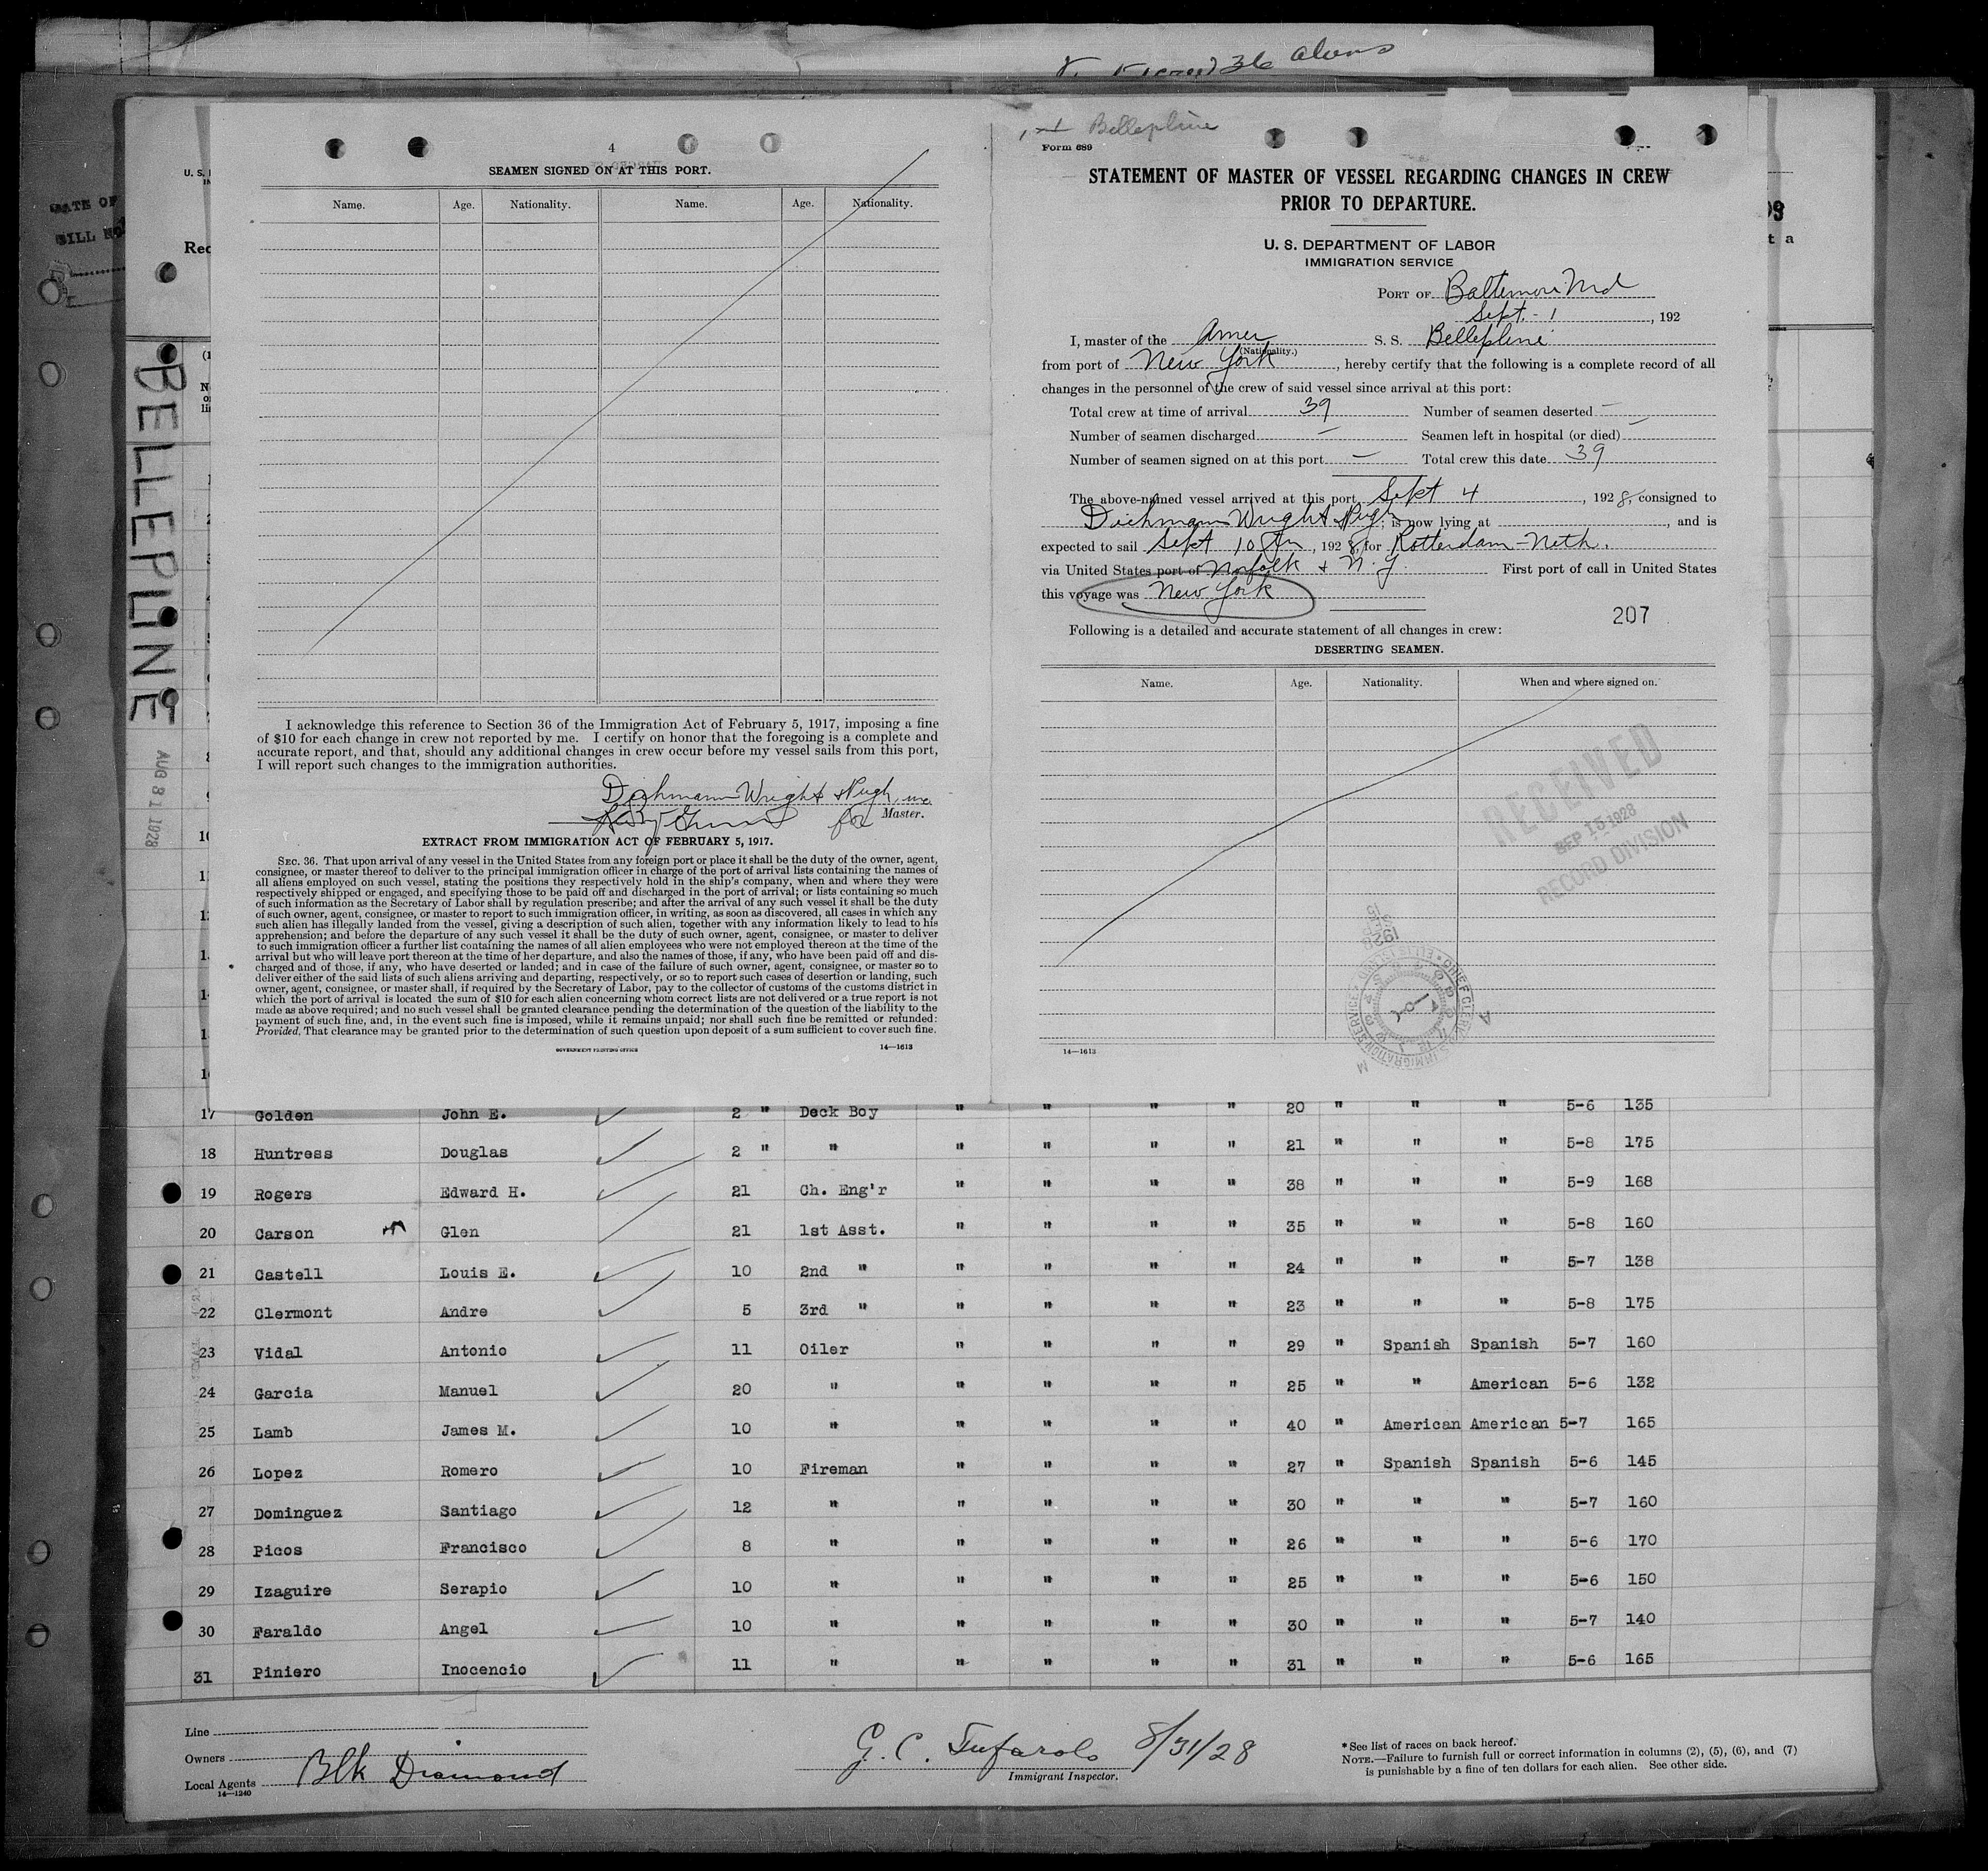 36 aliens
DATE OF
BILL NO
U. S.
Rec
BELLEPLINE
AUG 31 1928
4
SEAMEN SIGNED ON AT THIS PORT.
Name. Age. Nationality. Name. Age. Nationality.
I acknowledge this reference to Section 36 of the Immigration Act of February 5, 1917, imposing a fine
of $10 for each change in crew not reported by me. I certify on honor that the foregoing is a complete and
accurate report, and that, should any additional changes in crew occur before my vessel sails from this port,
I will report such changes to the immigration authorities.
Dichmann Wright & Pugh, inc
for Master.
EXTRACT FROM IMMIGRATION ACT OF FEBRUARY 5, 1917.
SEC. 36. That upon arrival of any vessel in the United States from any foreign port or place it shall be the duty of the owner, agent,
consignee, or master thereof to deliver to the principal immigration officer in charge of the port of arrival lists containing the names of
all aliens employed on such vessel, stating the positions they respectively hold in the ship's company, when and where they were
respectively shipped or engaged, and specifying those to be paid off and discharged in the port of arrival; or lists containing so much
of such information as the Secretary of Labor shall by regulation prescribe; and after the arrival of any such vessel it shall be the duty
of such owner, agent, consignee, or master to report to such immigration officer, in writing, as soon as discovered, all cases in which any
such alien has illegally landed from the vessel, giving a description of such alien, together with any information likely to lead to his
apprehension; and before the departure of any such vessel it shall be the duty of such owner, agent, consignee, or master to deliver
to such immigration officer a further list containing the names of all alien employees who were not employed thereon at the time of the
arrival but who will leave port thereon at the time of her departure, and also the names of those, if any, who have been paid off and dis-
charged and of those, if any, who have deserted or landed; and in case of the failure of such owner, agent, consignee, or master so to
deliver either of the said lists of such aliens arriving and departing, respectively, or so to report such cases of desertion or landing, such
owner, agent, consignee, or master shall, if required by the Secretary of Labor, pay to the collector of customs of the customs district in
which the port of arrival is located the sum of $10 for each alien concerning whom correct lists are not delivered or a true report is not
made as above required; and no such vessel shall be granted clearance pending the determination of the question of the liability to the
payment of such fine, and, in the event such fine is imposed, while it remains unpaid; nor shall such fine be remitted or refunded:
Provided, That clearance may be granted prior to the determination of such question upon deposit of a sum sufficient to cover such fine.
GOVERNMENT PRINTING OFFICE 14—1613
Bellepline
Form 689
STATEMENT OF MASTER OF VESSEL REGARDING CHANGES IN CREW
PRIOR TO DEPARTURE.
U. S. DEPARTMENT OF LABOR
IMMIGRATION SERVICE
PORT OF Baltimore Md
Sept. 1, 192
I, master of the Amer S. S. Bellepline
(Nationality.)
from port of New York, hereby certify that the following is a complete record of all
changes in the personnel of the crew of said vessel since arrival at this port:
Total crew at time of arrival 39 Number of seamen deserted —
Number of seamen discharged — Seamen left in hospital (or died) —
Number of seamen signed on at this port — Total crew this date 39
The above-named vessel arrived at this port Sept 4, 1928, consigned to
Dichmann Wright & Pugh; is now lying at , and is
expected to sail Sept 10th, 1928, for Rotterdam - Neth.
via United States port of Norfolk & N. Y. First port of call in United States
this voyage was New York
207
Following is a detailed and accurate statement of all changes in crew:
DESERTING SEAMEN.
Name. Age. Nationality. When and where signed on.
RECEIVED
SEP 15 1928
RECORD DIVISION
14—1613
17 Golden John E. 2 " Deck Boy " " " " 20 " " " 5-6 135
18 Huntress Douglas 2 " " " " " " 21 " " " 5-8 175
19 Rogers Edward H. 21 Ch. Eng'r " " " " 38 " " " 5-9 168
20 Carson Glen 21 1st Asst. " " " " 35 " " " 5-8 160
21 Castell Louis E. 10 2nd " " " " " 24 " " " 5-7 138
22 Clermont Andre 5 3rd " " " " " 23 " " " 5-8 175
23 Vidal Antonio 11 Oiler " " " " 29 " Spanish Spanish 5-7 160
24 Garcia Manuel 20 " " " " " 25 " " American 5-6 132
25 Lamb James M. 10 " " " " " 40 " American American 5-7 165
26 Lopez Romero 10 Fireman " " " " 27 " Spanish Spanish 5-6 145
27 Dominguez Santiago 12 " " " " " 30 " " " 5-7 160
28 Picos Francisco 8 " " " " " 26 " " " 5-6 170
29 Izaguire Serapio 10 " " " " " 25 " " " 5-6 150
30 Faraldo Angel 10 " " " " " 30 " " " 5-7 140
31 Piniero Inocencio 11 " " " " " 31 " " " 5-6 165
Line
Owners
Local Agents Blk Diamond
14—1240
G. C. Tufarolo 8/31/28
Immigrant Inspector.
* See list of races on back hereof.
NOTE.—Failure to furnish full or correct information in columns (2), (5), (6), and (7)
is punishable by a fine of ten dollars for each alien. See other side.